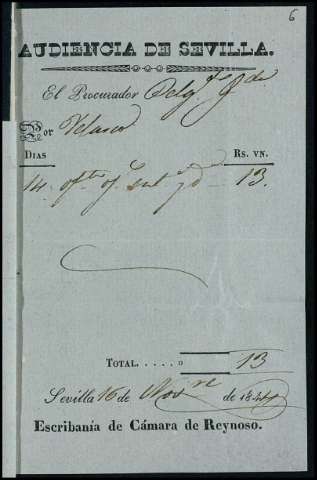 6
AUDIENCIA DE SEVILLA.
El Procurador
Por Velasco
DIAS RS. VN.
14 13
TOTAL. . . . . o 13
Sevilla 16 de Nov.re de 1844
Escribanía de Cámara de Reynoso.